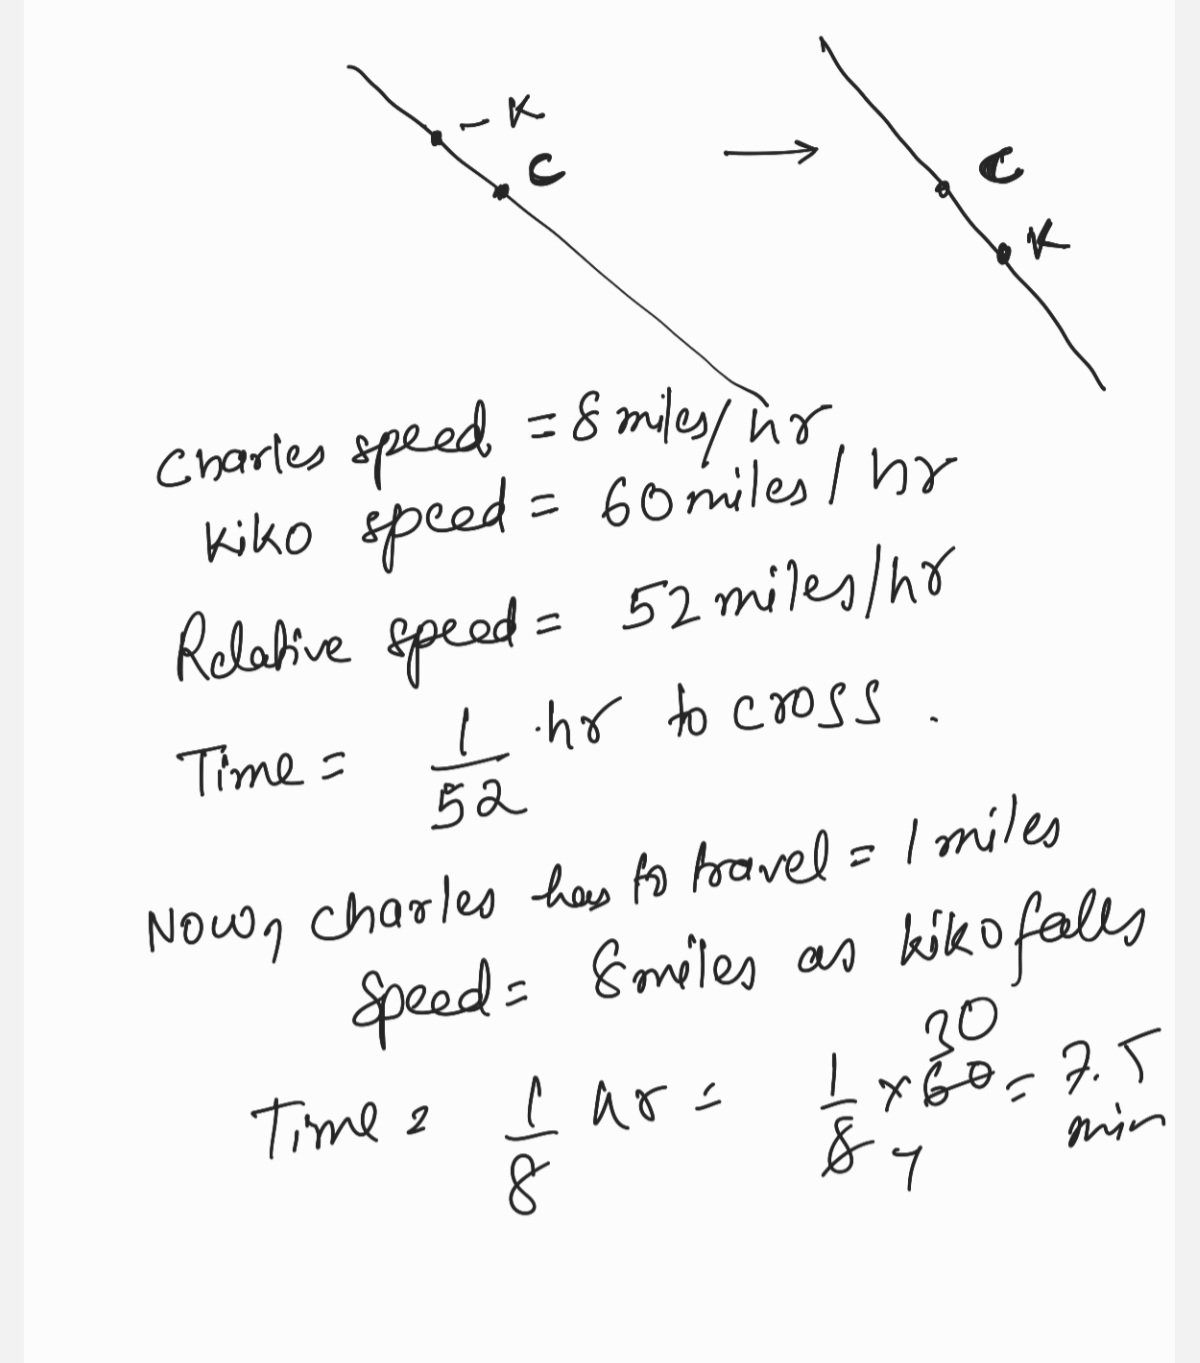 - K
C
C
K
Charles speed = 8 miles/hr
Kiko speed = 60 miles/hr
Relative speed = 52 miles/hr
Time = 1/52 hr to cross.
Now, Charles has to travel = 1 miles
Speed = 8 miles as kiko falls
Time = 1/8 hr = 1/8 4 x 60 30 = 7.5
min